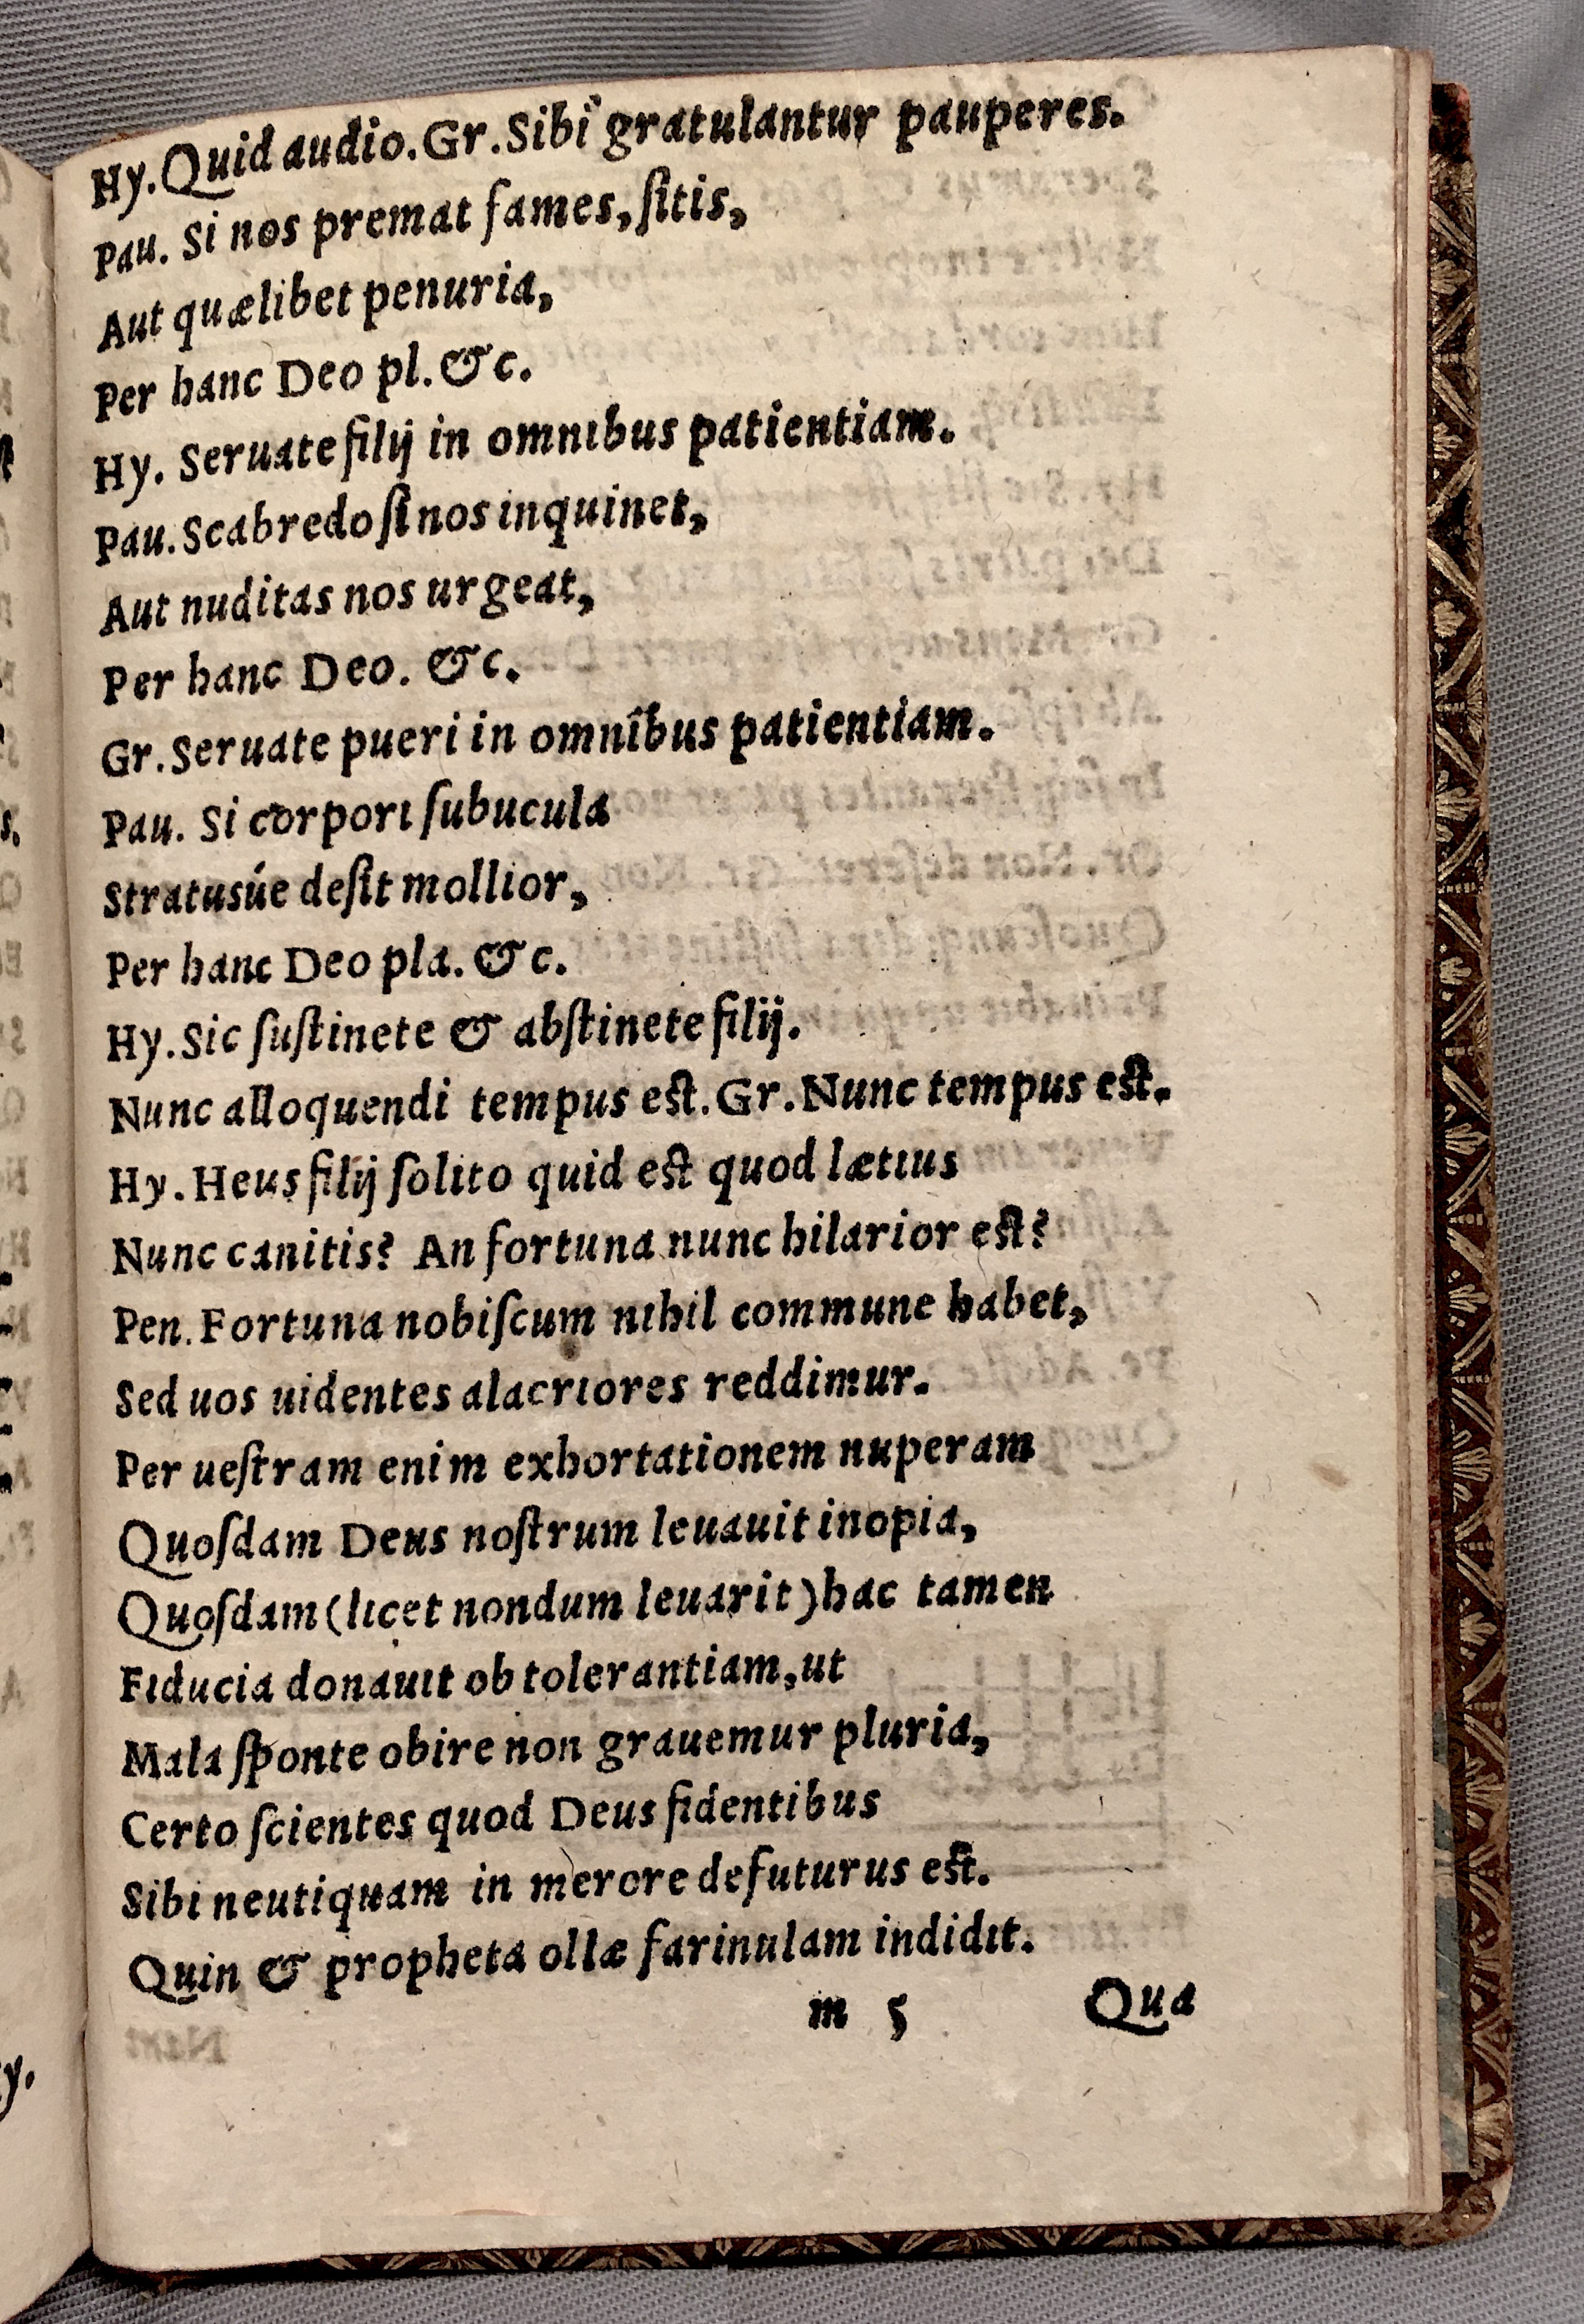 Hy. Quid audio. Gr. Sibi gratulantur pauperes.
Pau. Si nos premat fames, ſitis,
Aut quælibet penuria,
Per hanc Deo pl. &c.
Hy. Seruate filij in omnibus patientiam.
Pau. Scabredo ſi nos inquinet,
Aut nuditas nos urgeat,
Per hanc Deo. &c.
Gr. Seruate pueri in omnibus patientiam.
Pau. Si corpori ſubucula
Stratusúe deſit mollior,
Per hanc Deo pla. &c.
Hy. Sic ſuſtinete & abſtinete filij.
Nunc alloquendi tempus eſt. Gr. Nunc tempus eſt.
Hy. Heus filij ſolito quid eſt quod lætius
Nunc canitis? An fortuna nunc hilarior eſt?
Pen. Fortuna nobiſcum nihil commune habet,
Sed uos uidentes alacriores reddimur.
Per ueſtram enim exhortationem nuperam
Quoſdam Deus noſtrum leuauit inopia,
Quoſdam (licet nondum leuarit) hac tamen
Fiducia donauit ob tolerantiam, ut
Mala ſponte obire non grauemur pluria,
Certo ſcientes quod Deus fidentibus
Sibi neutiquam in merore defuturus eſt.
Quin & propheta ollæ farinulam indidit.
m 5 Qua